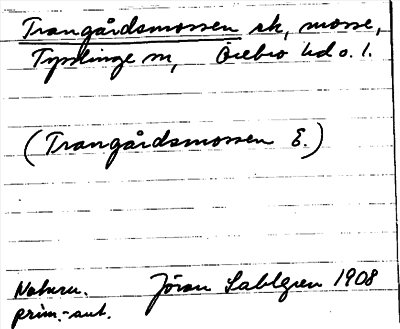 Trangårdsmossen sk, mosse,
Tysslinge sn, Örebro hd o. l.
(Trangårdsmossen E.)
Naturn. Jöran Sahlgren 1908
prim.-ant.